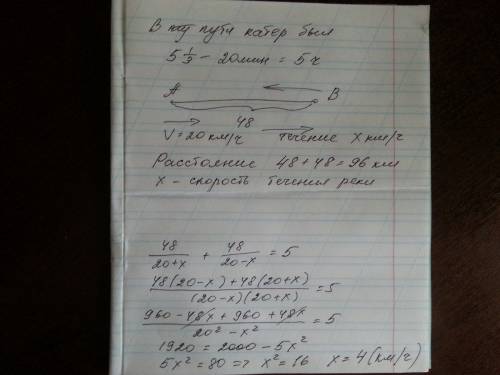 В пути катер был
5 1/3 - 20мин = 5 ч
A B
48
V=20 км/ч течение x км/ч
Расстояние 48+48=96 км
x - скорость течения реки
48/(20+x) + 48/(20-x) = 5
(48(20-x)+48(20+x))/((20-x)(20+x)) = 5
(960-48x+960+48x)/(20²-x²) = 5
1920 = 2000 - 5x²
5x² = 80 => x² = 16 x = 4 (км/ч)